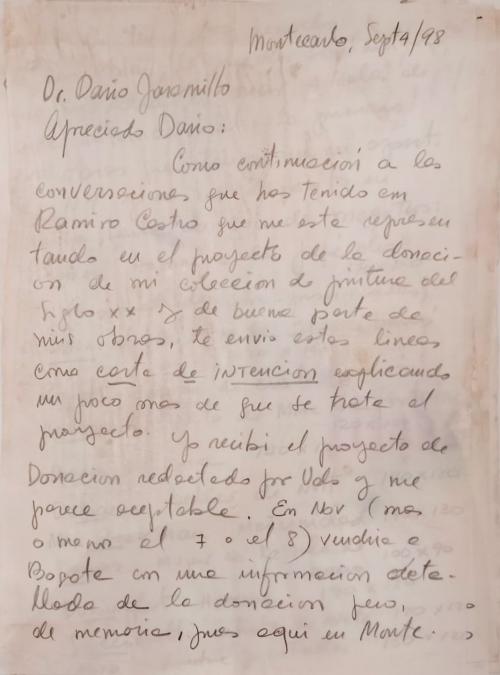 Montecarlo, Sept 4/98
Dr. Dario Jaramillo
Apreciado Dario:
Como continuación a las
conversaciones que has tenido con
Ramiro Castro que me esta represen
tando en el proyecto de la donaci-
on de mi coleccion de pintura del
siglo xx y de buena parte de
mis obras, te envio estas lineas
como carta de intencion explicando
un poco mas de que se trata el
proyecto. Yo recibi el proyecto de
Donacion redactado por Uds y me
parece aceptable. En Nov (mas
o menos el 7 o el 8) vendria a
Bogota con una informacion deta-
llada de la donacion pero,
de memoria, pues aqui en Monte-